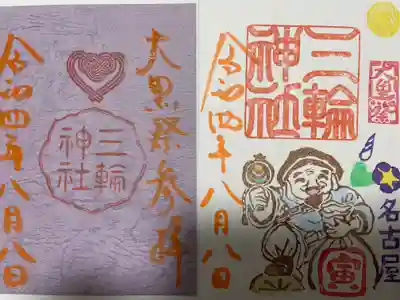 大黒祭参拝
三輪
神社
令和四年八月八日
三輪
神社
大黒祭
名古屋
寅
令和四年八月八日